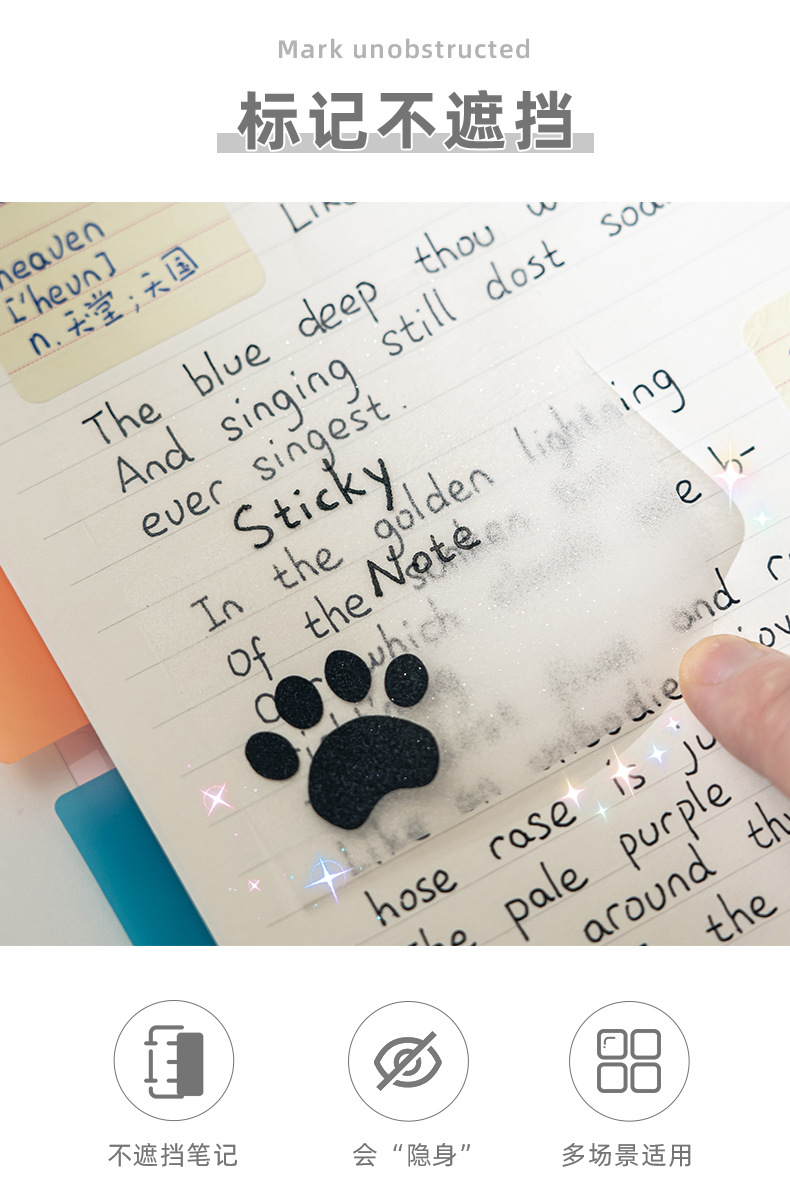 Mark unobstructed
标记不遮挡
heaven
['hevn]
n. 天堂；天国
The blue deep thou
And singing still dost soar
ever singest.
Sticky
In the golden lightning
Of the
Note
which
e b-
and
hose rase is ju
the pale purple
around
the
不遮挡笔记
会“隐身”
多场景适用